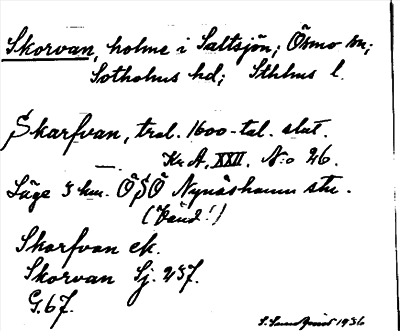 Skorvan, holme i Saltsjön; Ösmo sn;
Sotholms hd; Sthlms l.
Skarfvan, tral. 1600-tal. slut.
—. Kr. A. XXII. N:o 26.
Läge 3 km. ÖSÖ Nynäshamn stn.
(Vänd!)
Skarfvan ek.
Skorvan Sj. 237.
G. 67.
1936